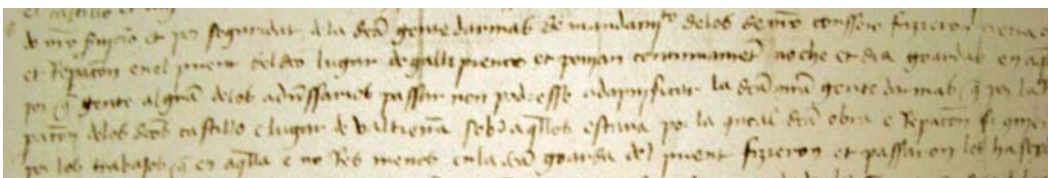 el castillo et
de nro seruicio et por seguridat de la dca gente darmas de mandamjto de los de nro conseio fizieron
et Reparon en el puent del dco lugar de gallipienço et ponian continuament noche et dia goardas en aql
por q gente alguna de los aduersarios passar non podiesse adapnificar la dca nra gente darmas q por la
paron de los dcos castillo e lugar de valtierra sobre aqllos estaua por la qual dca obra e Reparon
por los trabajos q en aqlla e no Res menos en la dca goarda del puent fizieron et passaron les